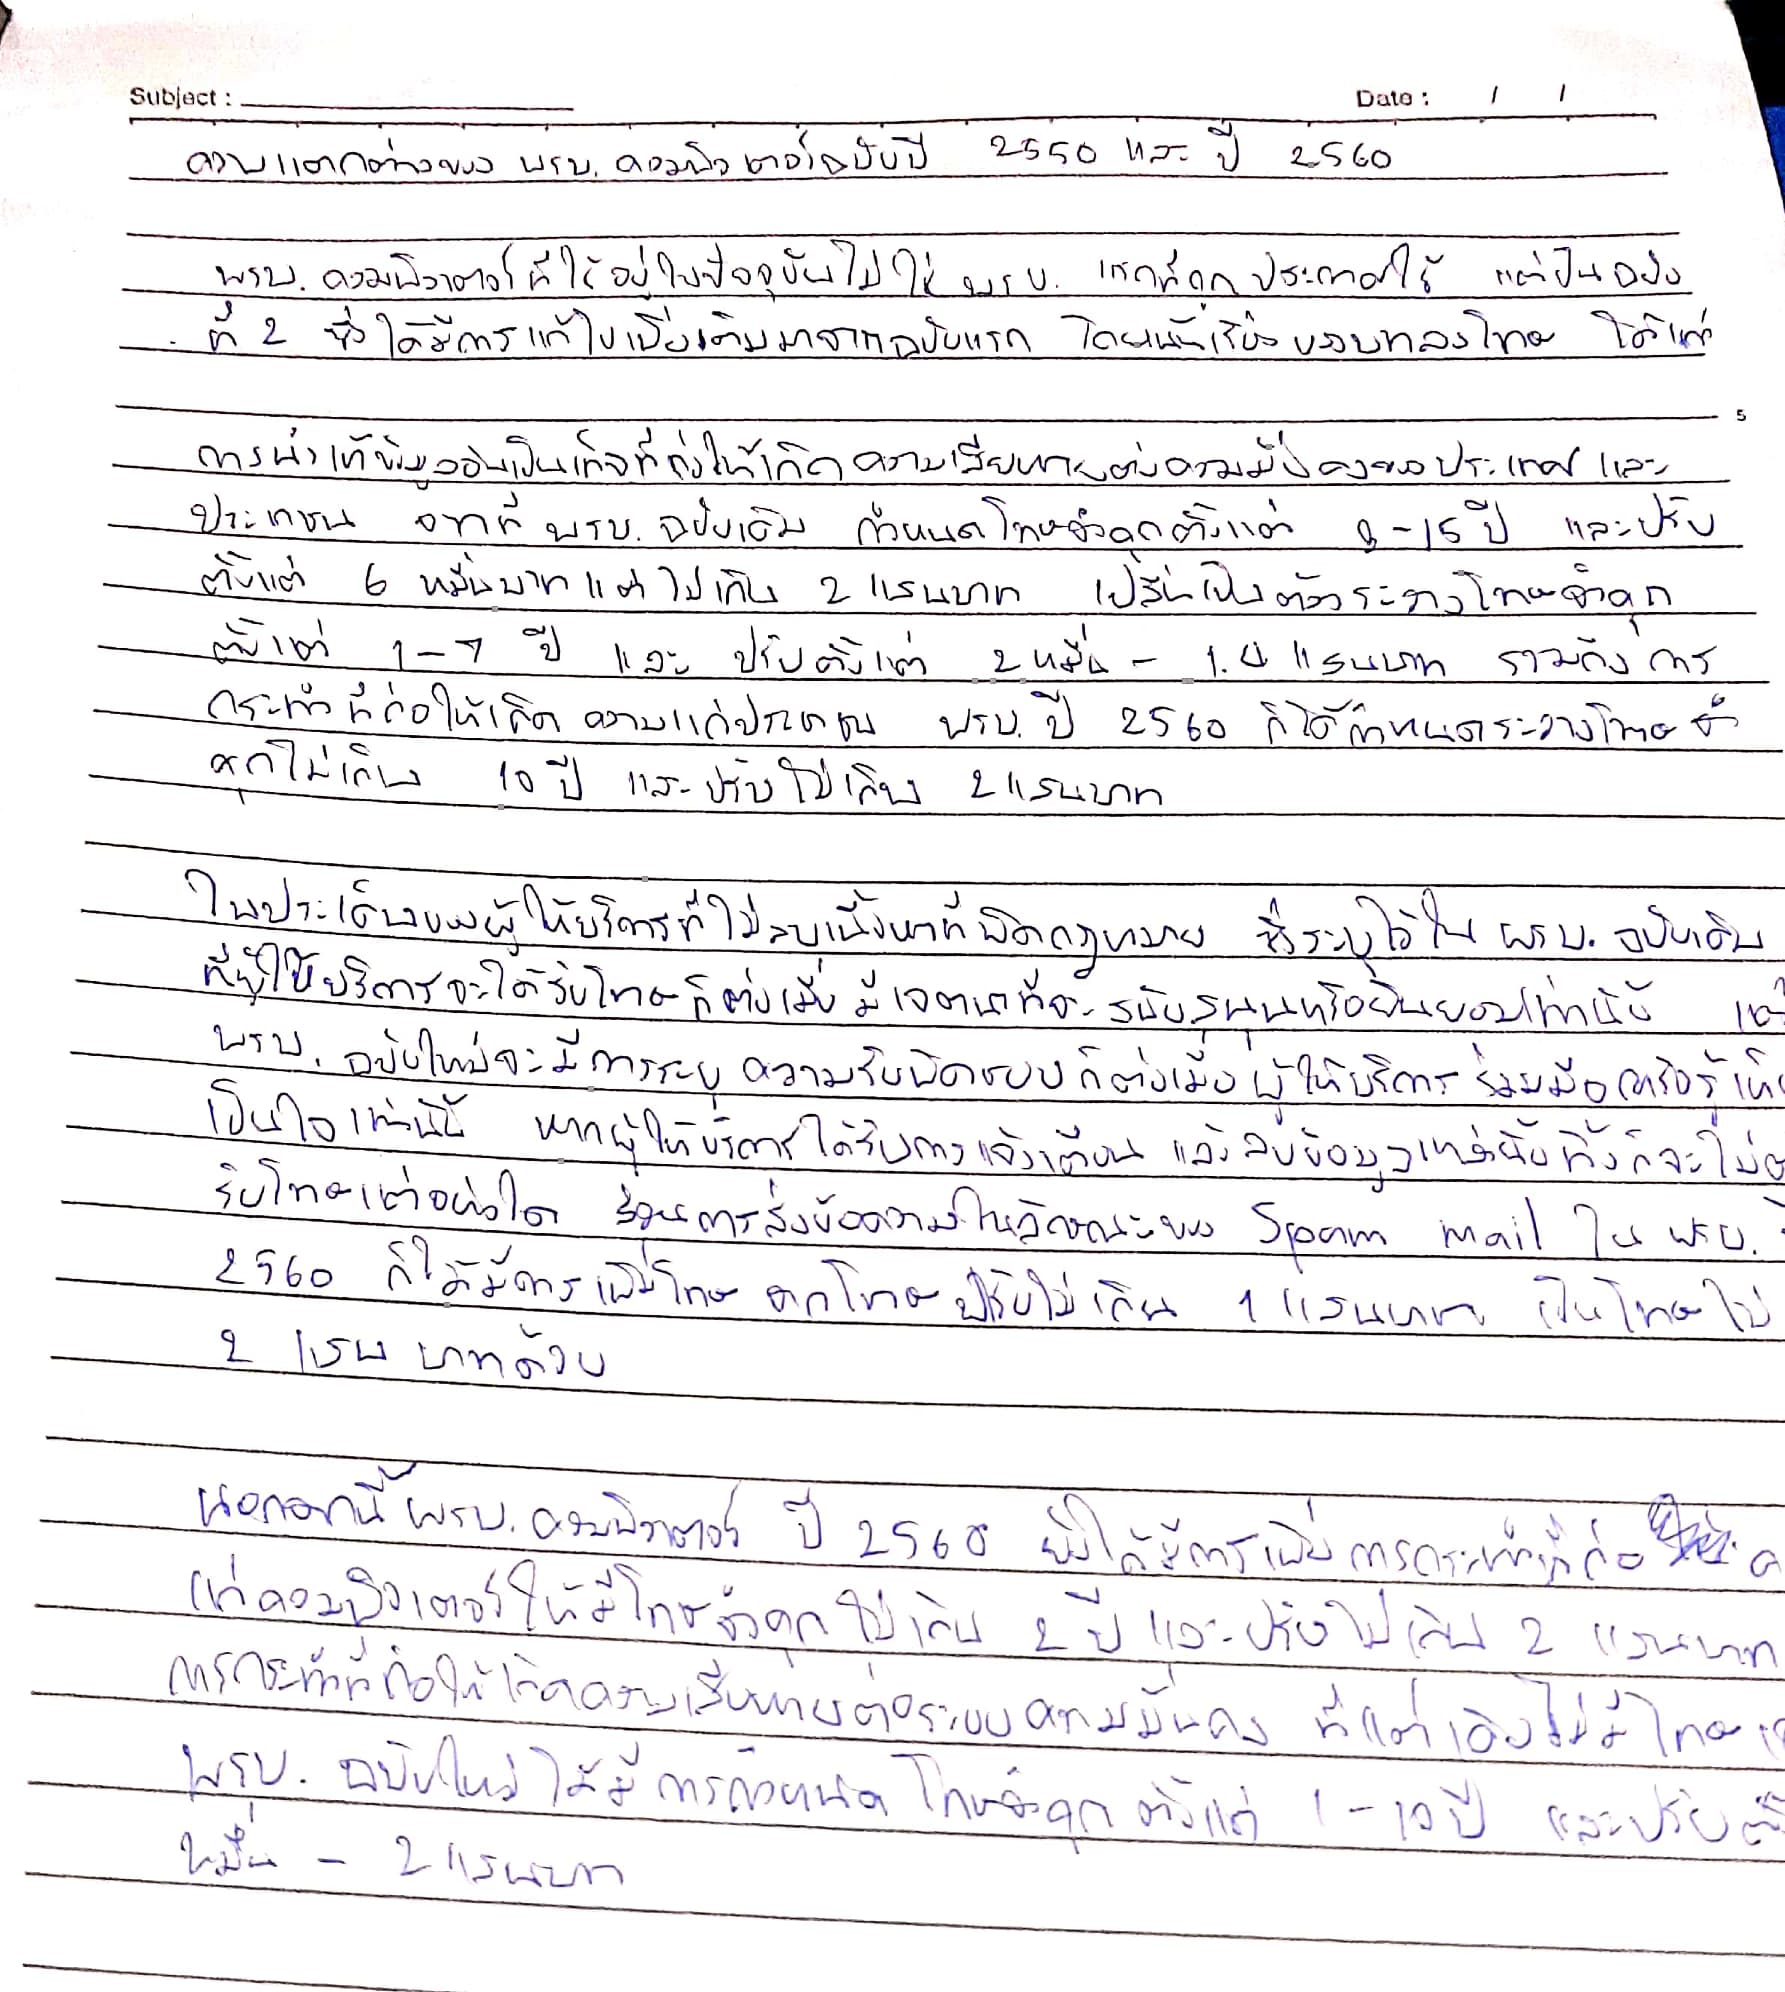 Subject :
Date : / /
ความแตกต่างของ พรบ. คอมพิวเตอร์ฉบับปี 2550 และ ปี 2560
พรบ. คอมพิวเตอร์ที่ใช้อยู่ในปัจจุบันไม่ใช่ พรบ. แรกที่ถูกประกาศใช้ แต่เป็นฉบับ
ที่ 2 ซึ่งได้มีการแก้ไขเพิ่มเติมมาจากฉบับแรก โดยเน้นเรื่องของบทลงโทษ ได้แก่
5
การนำเข้าข้อมูลอันเป็นเท็จที่ก่อให้เกิดความเสียหายต่อความมั่นคงของประเทศ และ
ประชาชน จากที่ พรบ. ฉบับเดิม กำหนดโทษจำคุกตั้งแต่ -15 ปี และปรับ
ตั้งแต่ 6 หมื่นบาท แต่ไม่เกิน 2 แสนบาท โทษจำคุก
ตั้งแต่ 1-7 ปี และ ปรับตั้งแต่ 2 หมื่น - 1.4 แสนบาท รวมถึงการ
กระทำที่ก่อให้เกิดความแก่ประชาชน พรบ. ปี 2560 ก็ได้กำหนดระวางโทษจำ
คุกไม่เกิน 10 ปี และปรับไม่เกิน 2 แสนบาท
ในประเด็นของผู้ให้บริการที่ไม่ลบเนื้อหาที่ผิดกฎหมาย ซึ่งระบุไว้ใน พรบ. ฉบับเดิม
ที่ผู้ให้บริการจะได้รับโทษก็ต่อเมื่อ มีเจตนาที่จะสนับสนุนหรือยินยอมเท่านั้น
พรบ. ฉบับใหม่จะมีการระบุ ความรับผิดชอบก็ต่อเมื่อ ผู้ให้บริการร่วมมือหรือรู้เห็น
เป็นใจเท่านั้น หากผู้ให้บริการได้รับการแจ้งเตือน และลบข้อมูลเหล่านั้นทิ้งก็จะไม่
รับโทษแต่อย่างใด ส่วนการส่งข้อความในลักษณะของ Spam mail ใน พรบ.
2560 ก็ได้มีการเพิ่มโทษ จากโทษปรับไม่เกิน 1 แสนบาท เป็นโทษไม่
2 แสน บาทด้วย
นอกจากนี้ พรบ. คอมพิวเตอร์ ปี 2560 ยังได้มีการเพิ่ม การกระทำที่ก่อ
แก่คอมพิวเตอร์ ให้มีโทษจำคุก ไม่เกิน 2 ปี และปรับไม่เกิน 2 แสนบาท
การกระทำที่ก่อให้เกิดความเสียหายต่อระบบความมั่นคง ที่แต่เดิมไม่มีโทษ
พรบ. ฉบับใหม่ ได้มีการกำหนด โทษจำคุก ตั้งแต่ 1-10 ปี และปรับ
หมื่น - 2 แสนบาท